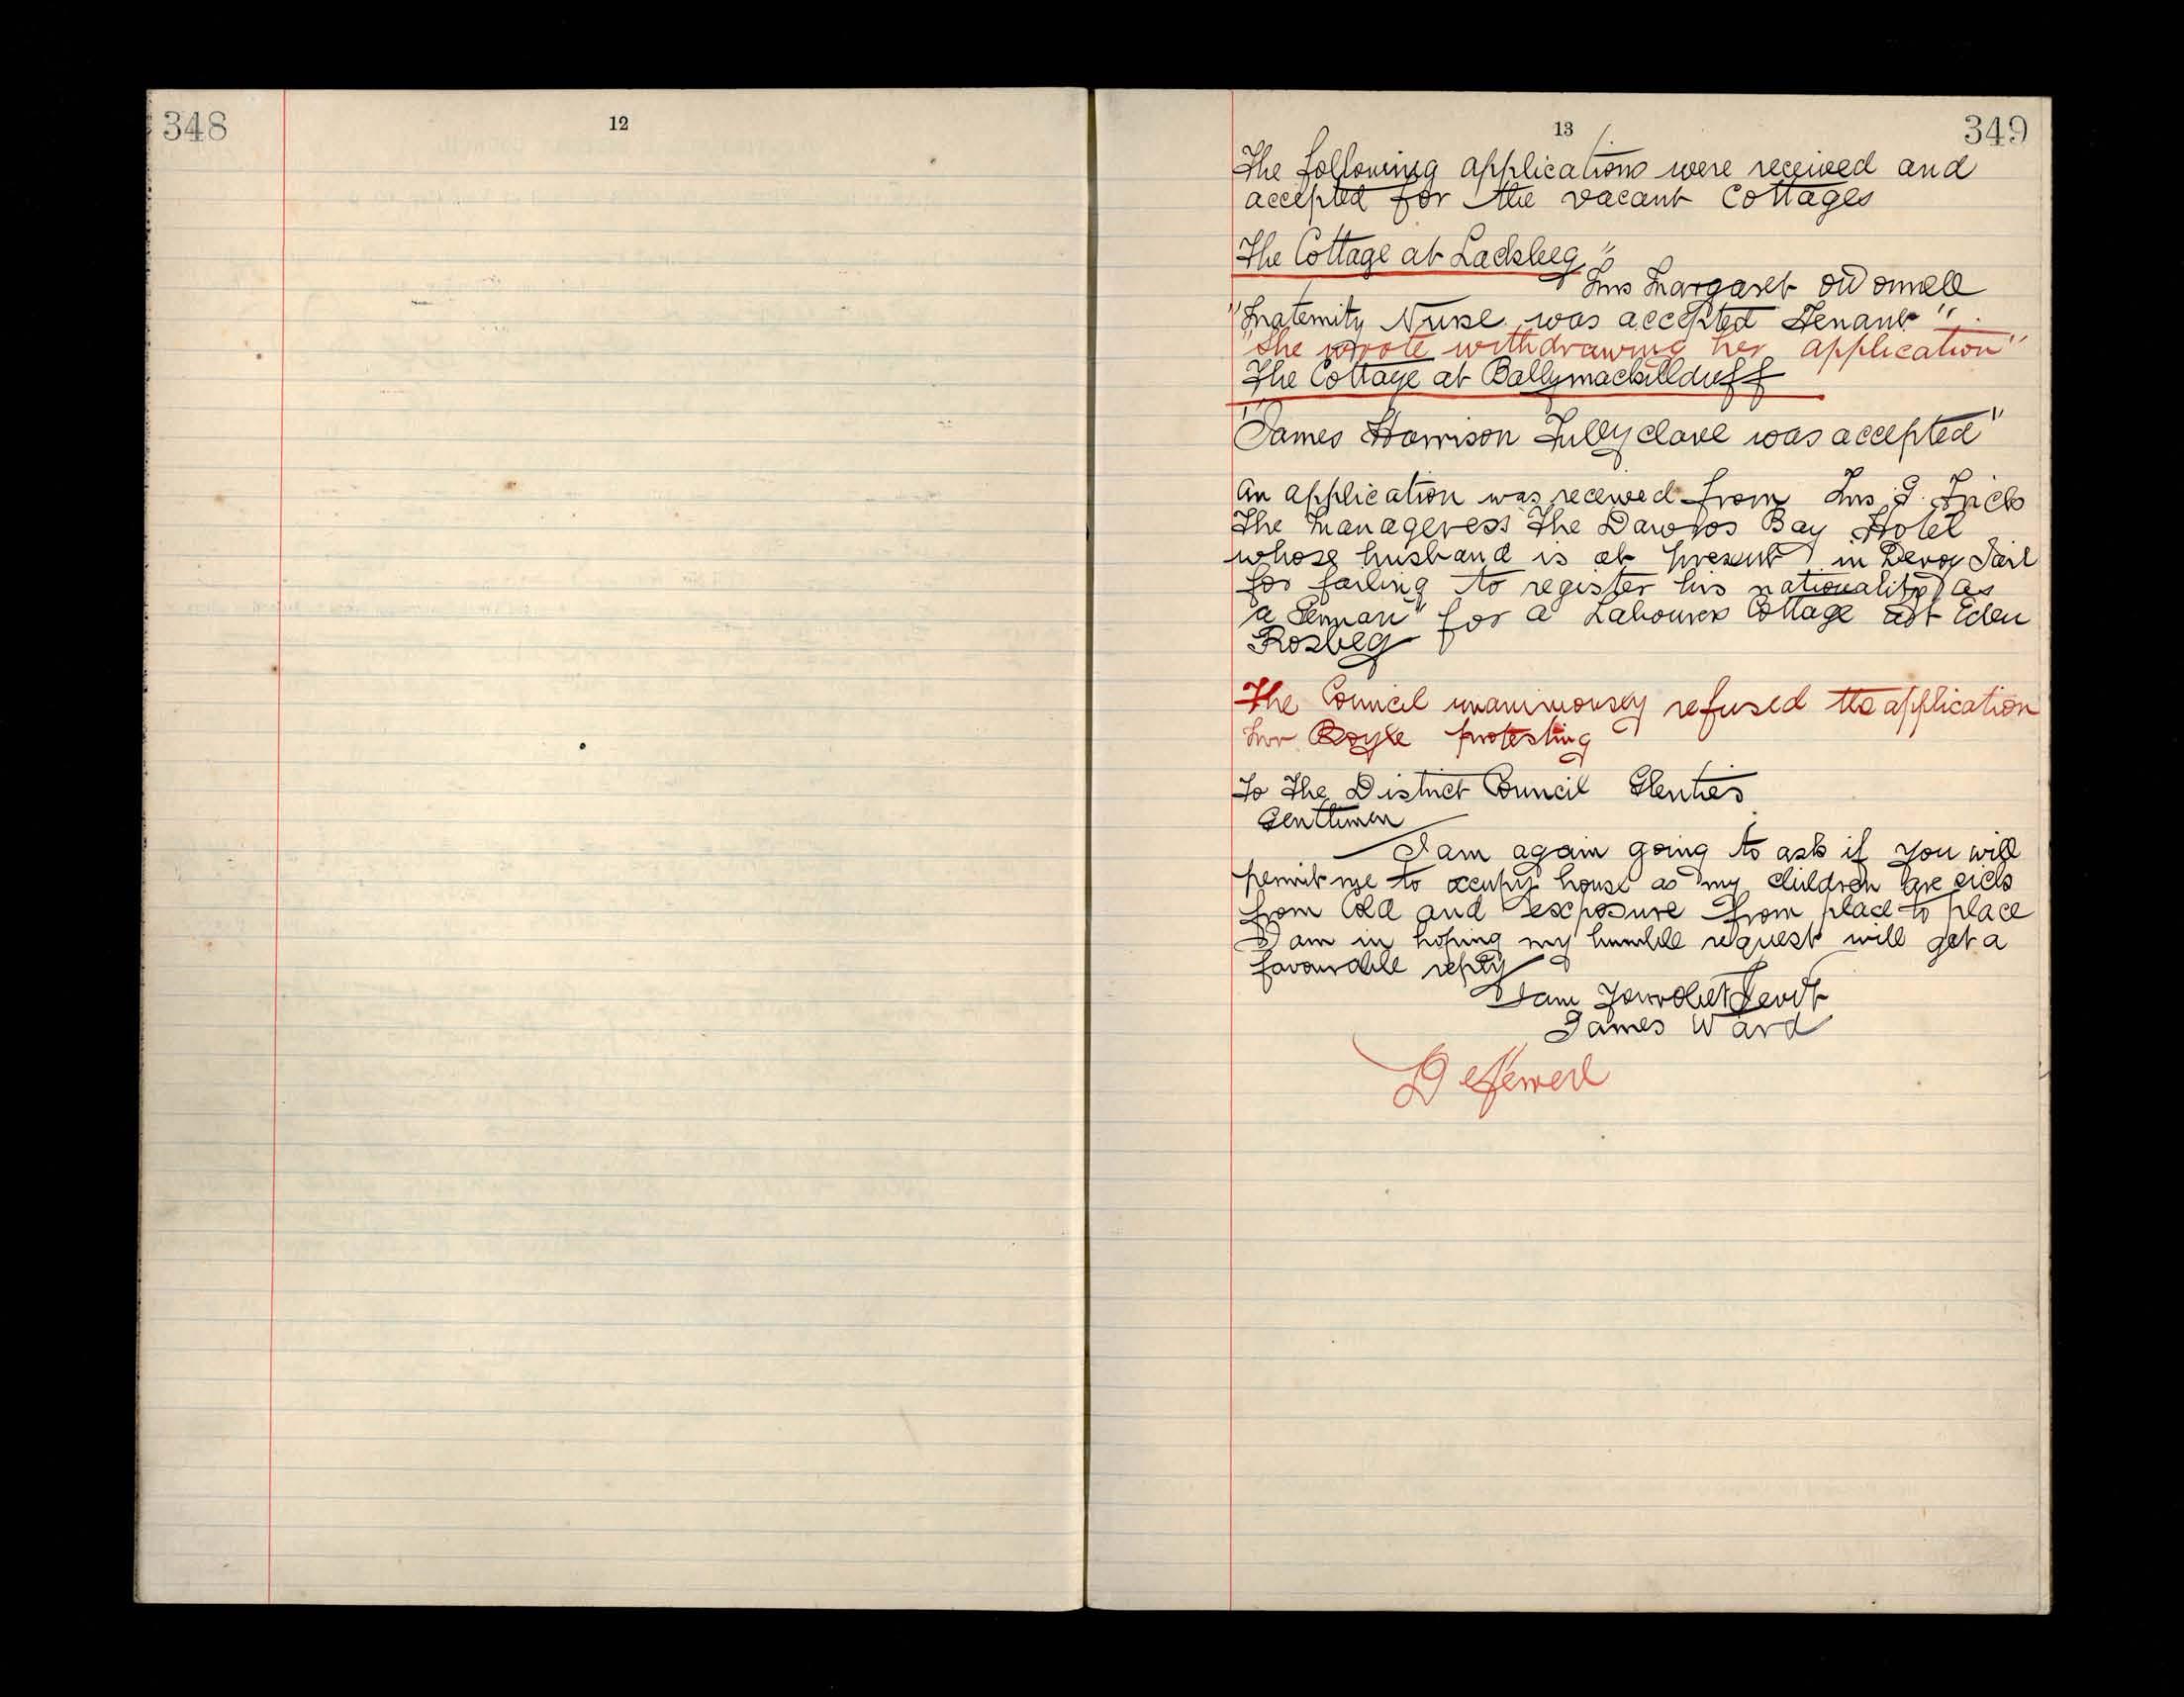 348
12
13
349
The following applications were received and
accepted for the vacant Cottages
The Cottage at Lackbeg "
Mrs Margaret O'Donnell
"Maternity Nurse was accepted Tenant"
"She wrote withdrawing her application"
The Cottage at Ballymackilduff
"James Harrison Tullyclave was accepted"
An application was received from Mrs J.
The Manageress The Dawros Bay Hotel
whose husband is at present in Derry Jail
for failing to register his nationality as
"a German" for a Labourers Cottage at Eden
Rosbeg
The Council unanimously refused the application
Mr Boyle protesting
To The District Council Glenties
Gentlemen
I am again going to ask if you will
permit me to occupy house as my children are sick
from Cold and exposure from place to place
I am in hoping my humble request will get a
favourable reply
I am Your Obet Servt
James Ward
Deferred